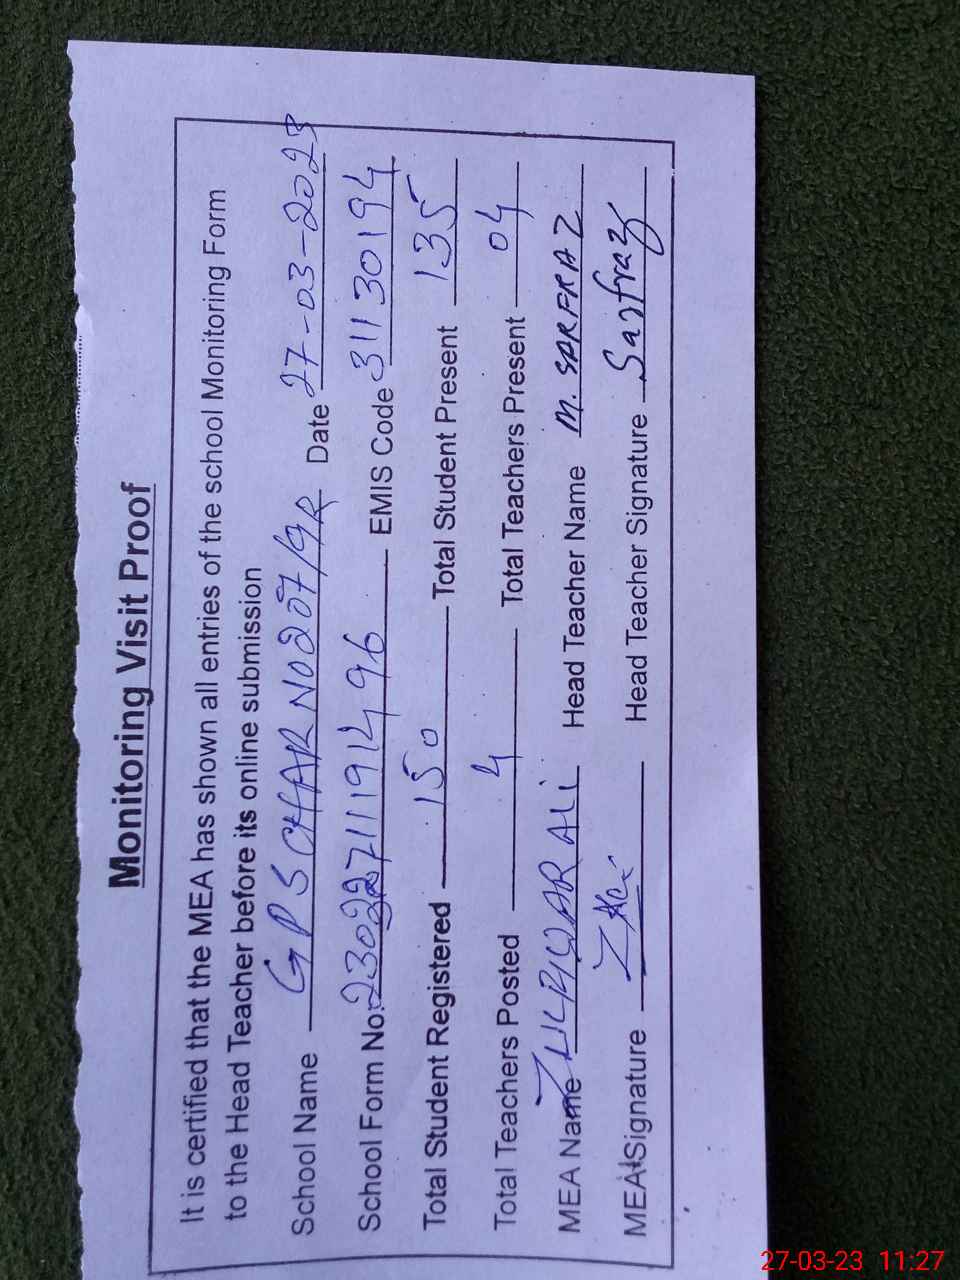 Monitoring Visit Proof
It is certified that the MEA has shown all entries of the school Monitoring Form
to the Head Teacher before its online submission
School Name G P S CHAR NO 207/9R Date 27-03-2023
School Form No: EMIS Code 31130194
Total Student Registered 150 Total Student Present 135
Total Teachers Posted 4 Total Teachers Present 04
MEA Name ZULFIQAR ALI Head Teacher Name M. SARFRAZ
MEA Signature Head Teacher Signature Sarfraz
27-03-23 11:27